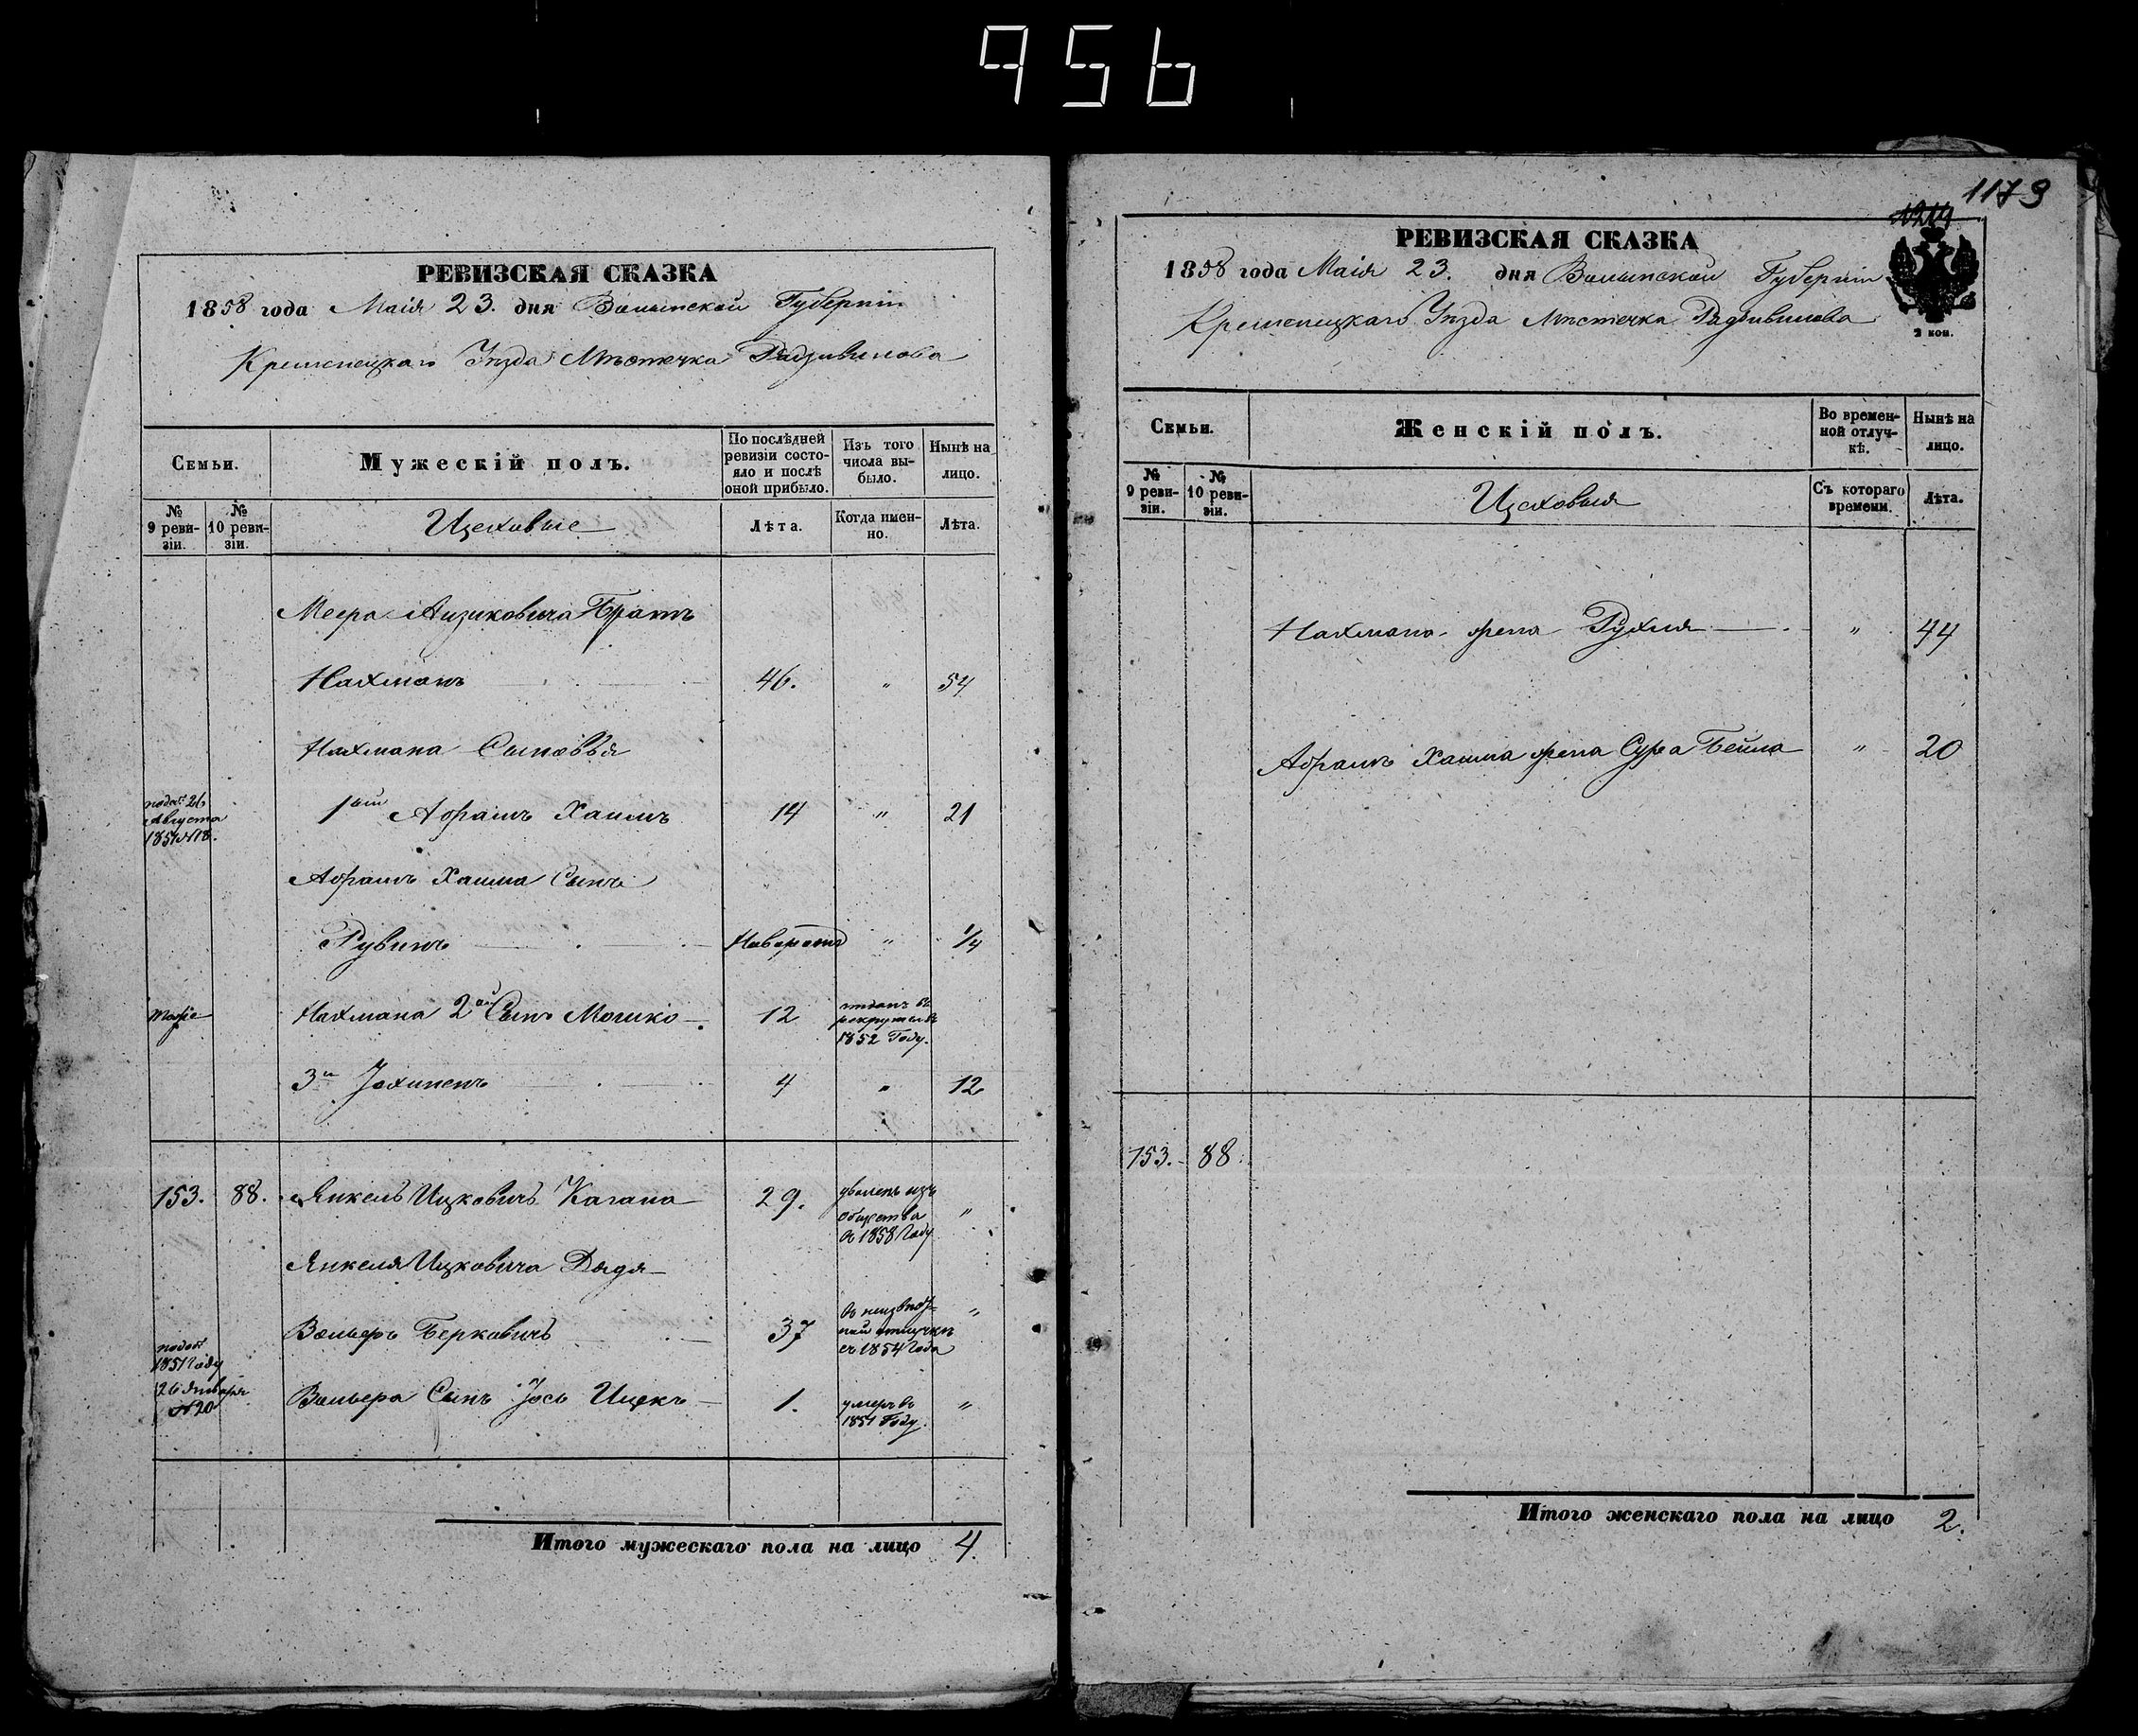 956
РЕВИЗСКАЯ СКАЗКА
1858 года Маія 23. дня Волынской Губерніи
Кременецкаго Уѣзда Мѣстечка Радзивилова
Семьи.
Мужескій полъ.
По послѣдней ревизіи состояло и послѣ оной прибыло.
Изъ того числа выбыло.
Нынѣ на лицо.
№ 9 ревизіи.
№ 10 ревизіи.
Цеховые
Лѣта.
Когда именно.
Лѣта.
Меера Аизиковича Братъ
Нахманъ 46. " 54
Нахмана Сыновья
1ый Абрамъ Хаимъ 14 " 21
Августа
Абрамъ Хаима Сынъ
Рувинъ Новорожд " 1/4
тоже Нахмана 2ой Сынъ Мошко 12
отданъ въ
рекруты въ
1852 Году.
3й Іохименъ 4 " 12
153. 88. Янкель Ицковичъ Кагана 29. "
уволенъ изъ
общества
въ 1858 Году
Янкеля Ицковича Дядя
Вольферъ Берковичъ 37 "
въ неизвѣст-
ной отлучкѣ
съ 1854 Года
1851 Году
26 Января
№20
Вольфера Сынъ Іось Ицекъ 1. "
умеръ въ
1851 Году.
Итого мужескаго пола на лицо 4.
1173
1214
РЕВИЗСКАЯ СКАЗКА
1858 года Маія 23. дня Волынской Губерніи
Кременецкаго Уѣзда Мѣстечка Радзивилова
2 коп.
Семьи.
Женскій полъ.
Во временной отлучкѣ.
Нынѣ на лицо.
№ 9 ревизіи.
№ 10 ревизіи.
Цеховыя
Съ котораго времени.
Лѣта.
Нахмана жена Рухля " 44
Абрамъ Хаима жена Сура Бейла " 20
153. 88.
Итого женскаго пола на лицо 2.